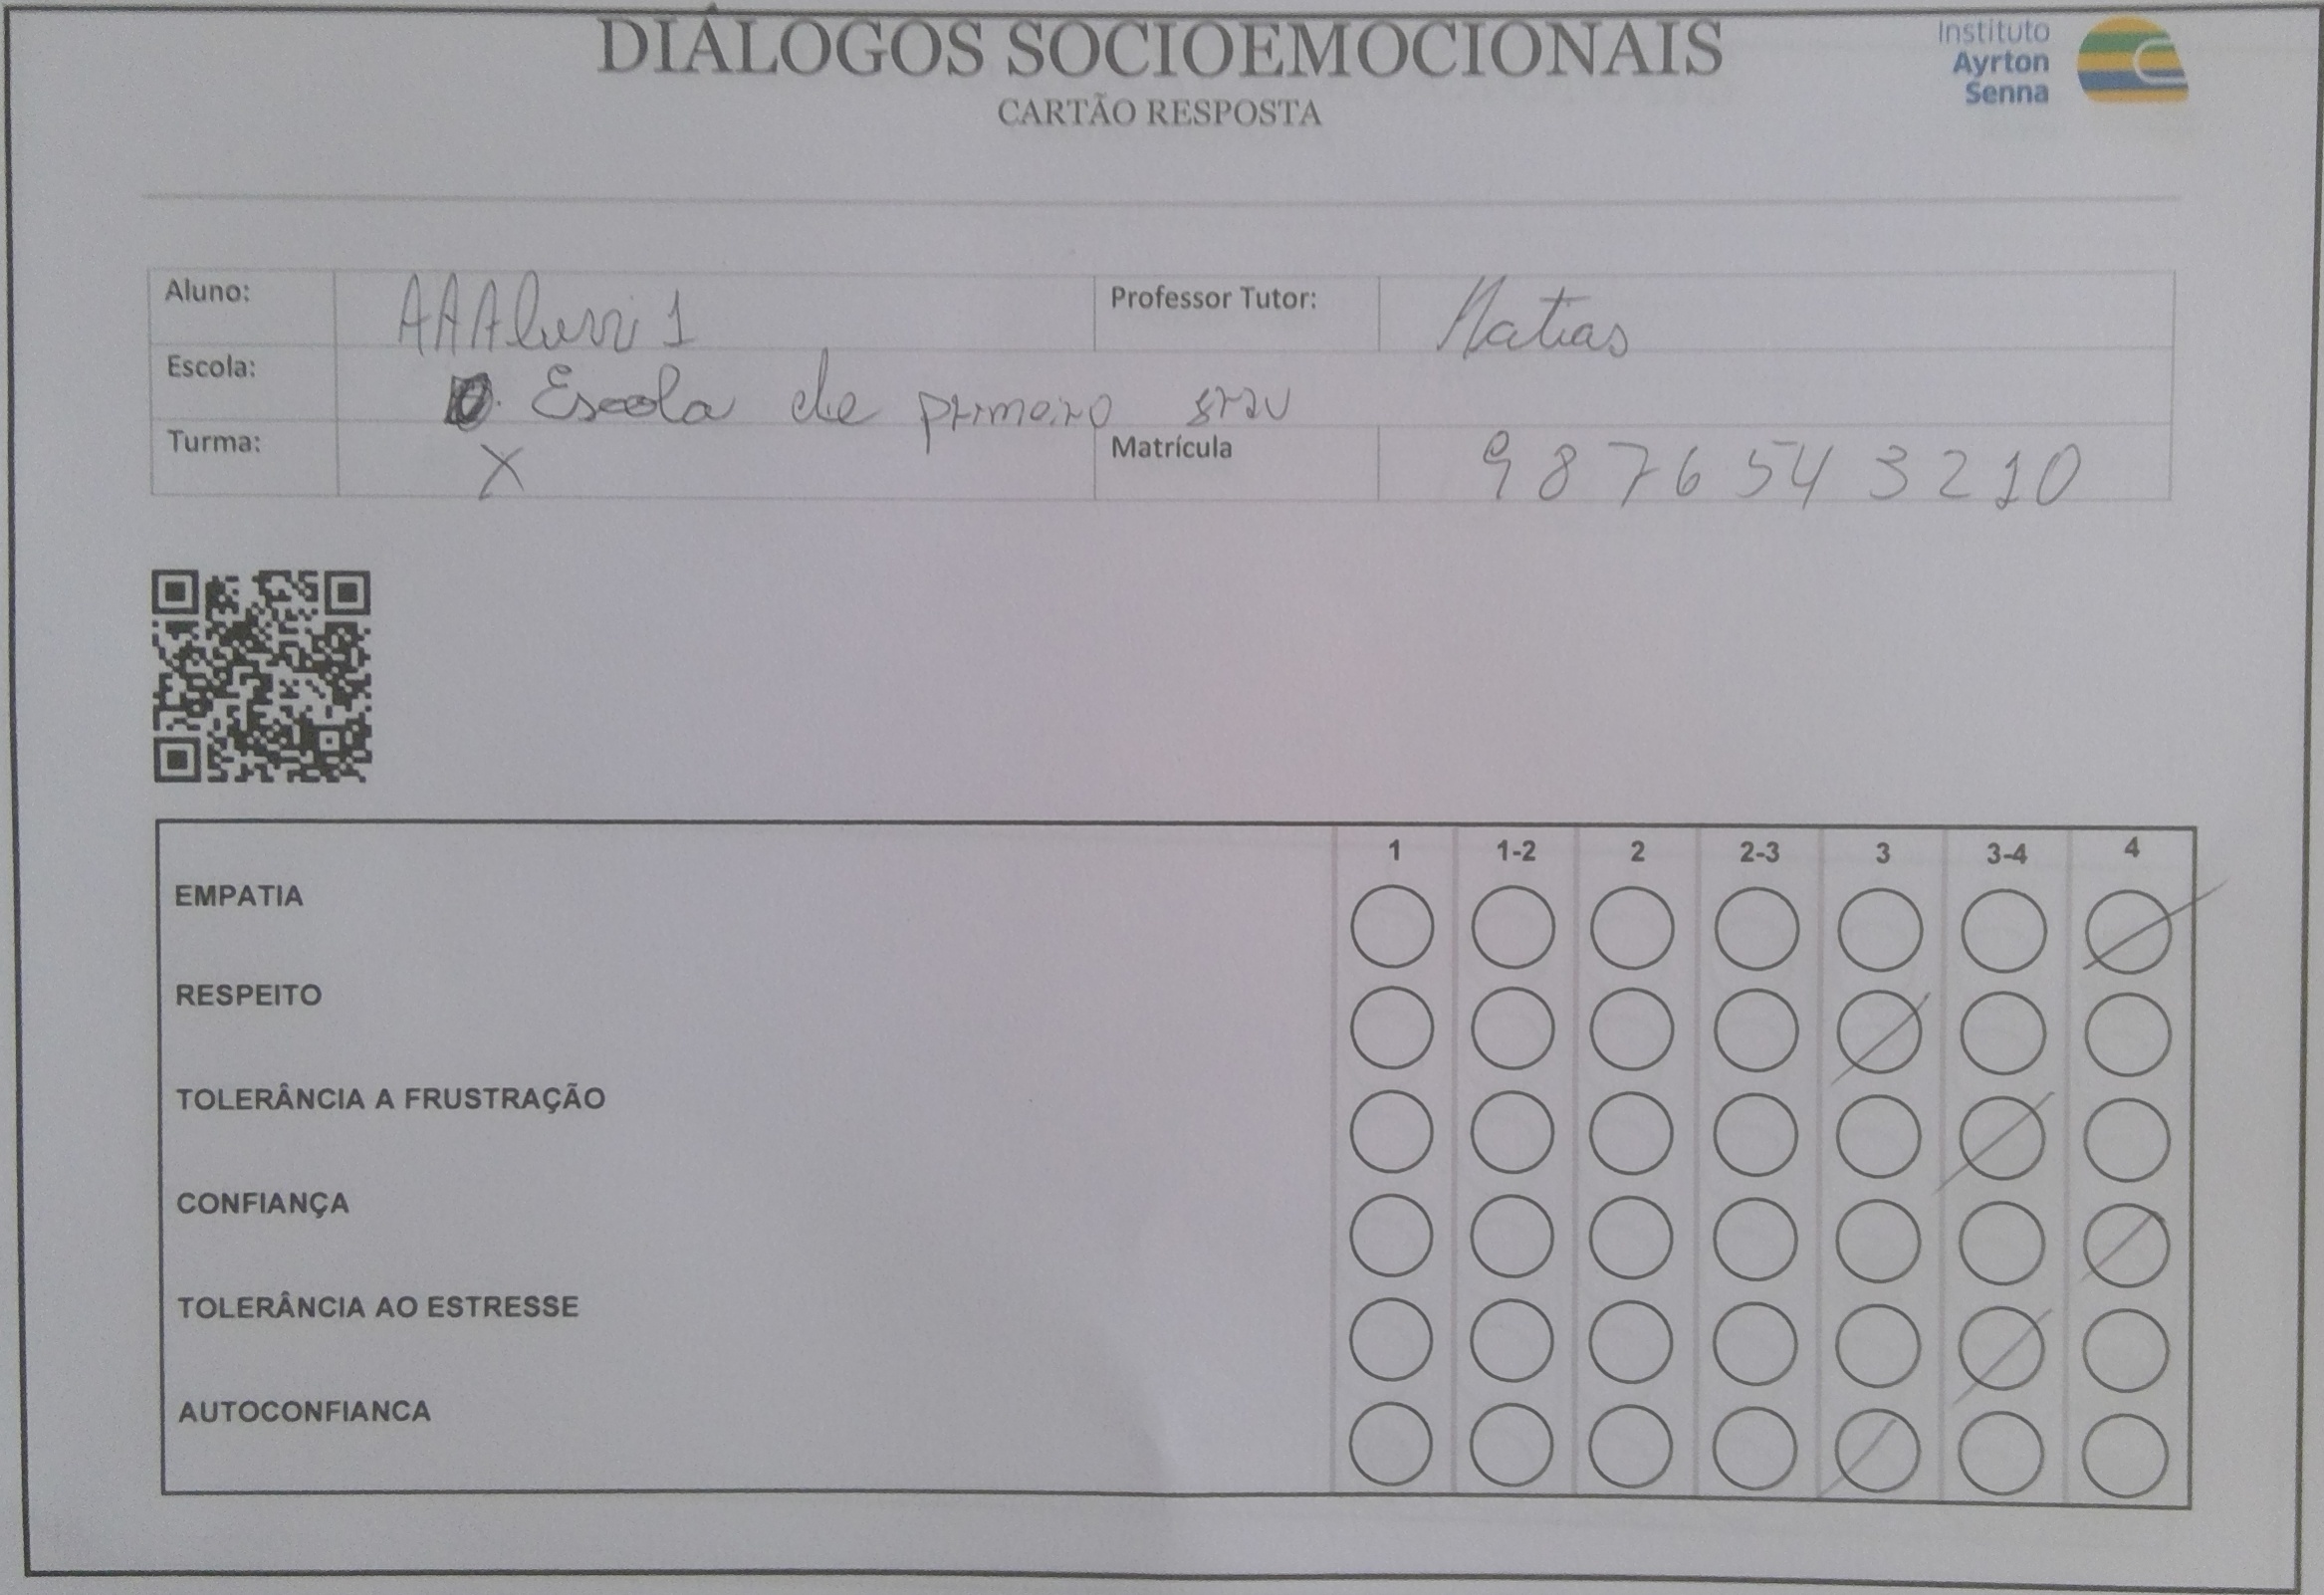 DIÁLOGOS SOCIOEMOCIONAIS
CARTÃO RESPOSTA
Instituto
Ayrton
Senna
Aluno: Professor Tutor: Matias
Escola: Escola de primeiro grau
Turma: X Matrícula 9876543210
1 1-2 2 2-3 3 3-4 4
EMPATIA
RESPEITO
TOLERÂNCIA A FRUSTRAÇÃO
CONFIANÇA
TOLERÂNCIA AO ESTRESSE
AUTOCONFIANCA